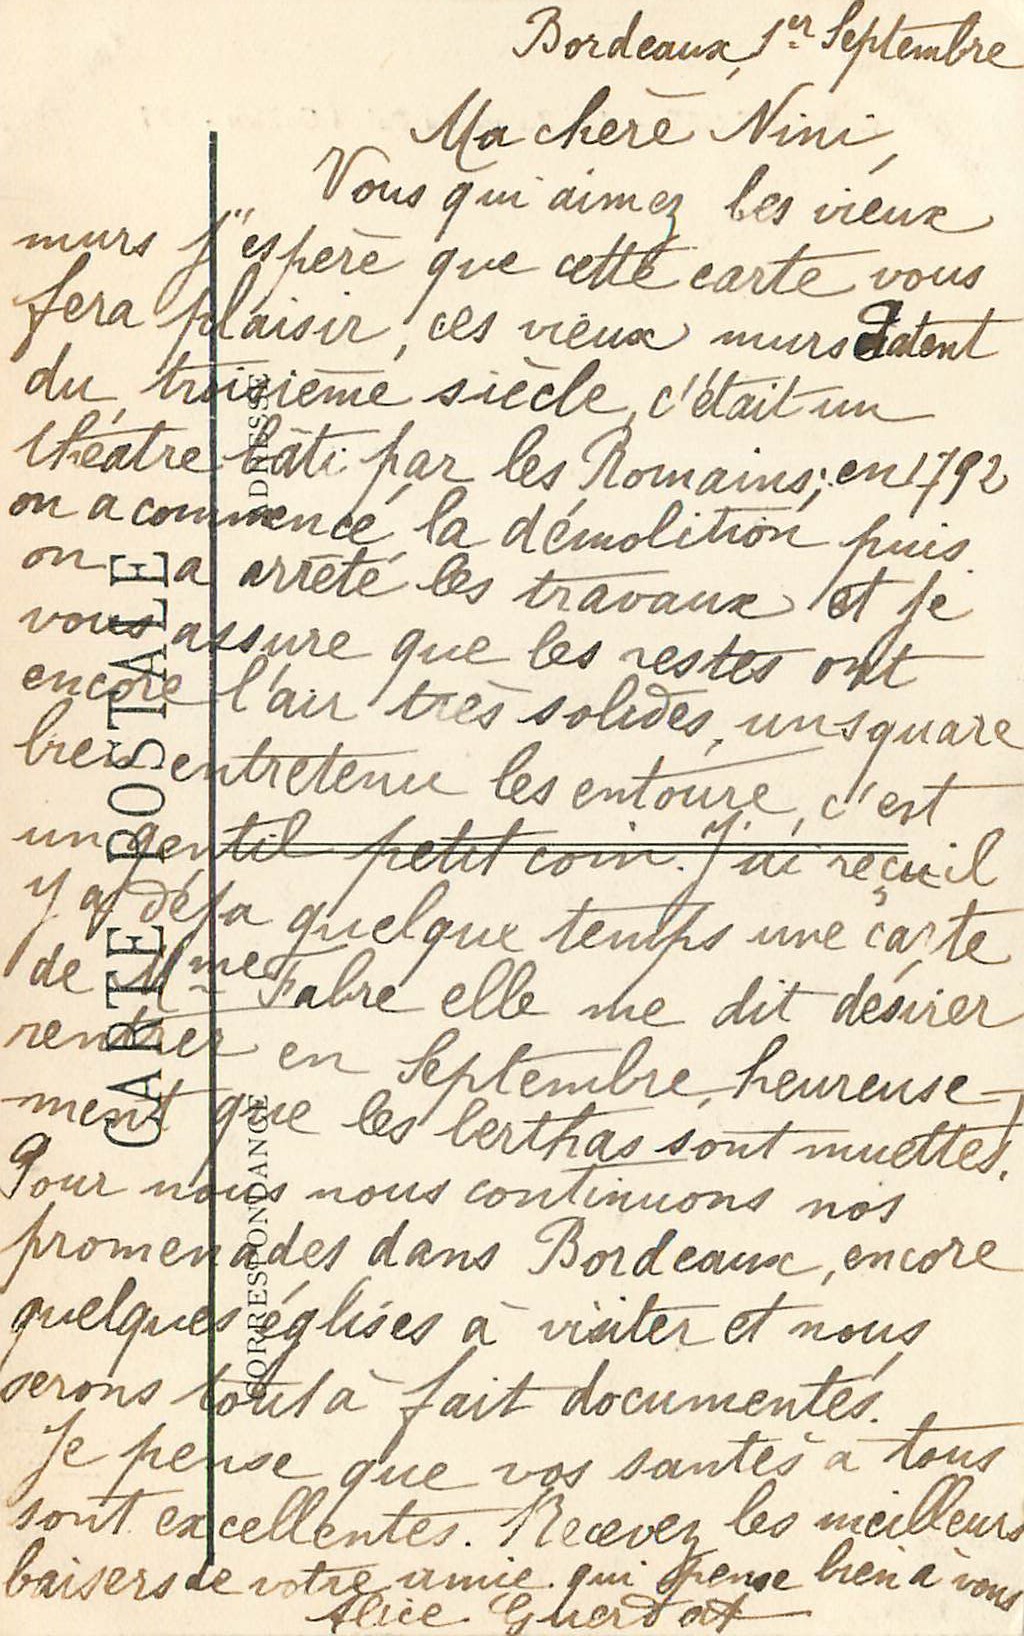 Bordeaux, 1er Septembre
Ma chère Nini,
Vous qui aimez les vieux
murs j'espère que cette carte vous
fera plaisir, ces vieux murs datent
du troisième siècle, c'était un
théâtre bâti par les Romains; en 1792
on a commencé la démolition puis
on a arrêté les travaux et je
vous assure que les restes ont
encore l'air très solides, un square
bien entretenu les entoure, c'est
un gentil petit coin. J'ai reçu il
y a déjà quelque temps une carte
de Mme Fabre elle me dit désirer
rentrer en Septembre, heureuse-
ment que les berthas sont muettes.
Pour nous nous continuons nos
promenades dans Bordeaux, encore
quelques églises à visiter et nous
serons tout à fait documentés.
Je pense que vos santés à tous
sont excellentes. Recevez les meilleurs
baisers de votre amie qui pense bien à vous
Alice Guerdat
CARTE POSTALE
CORRESPONDANCE
ADRESSE